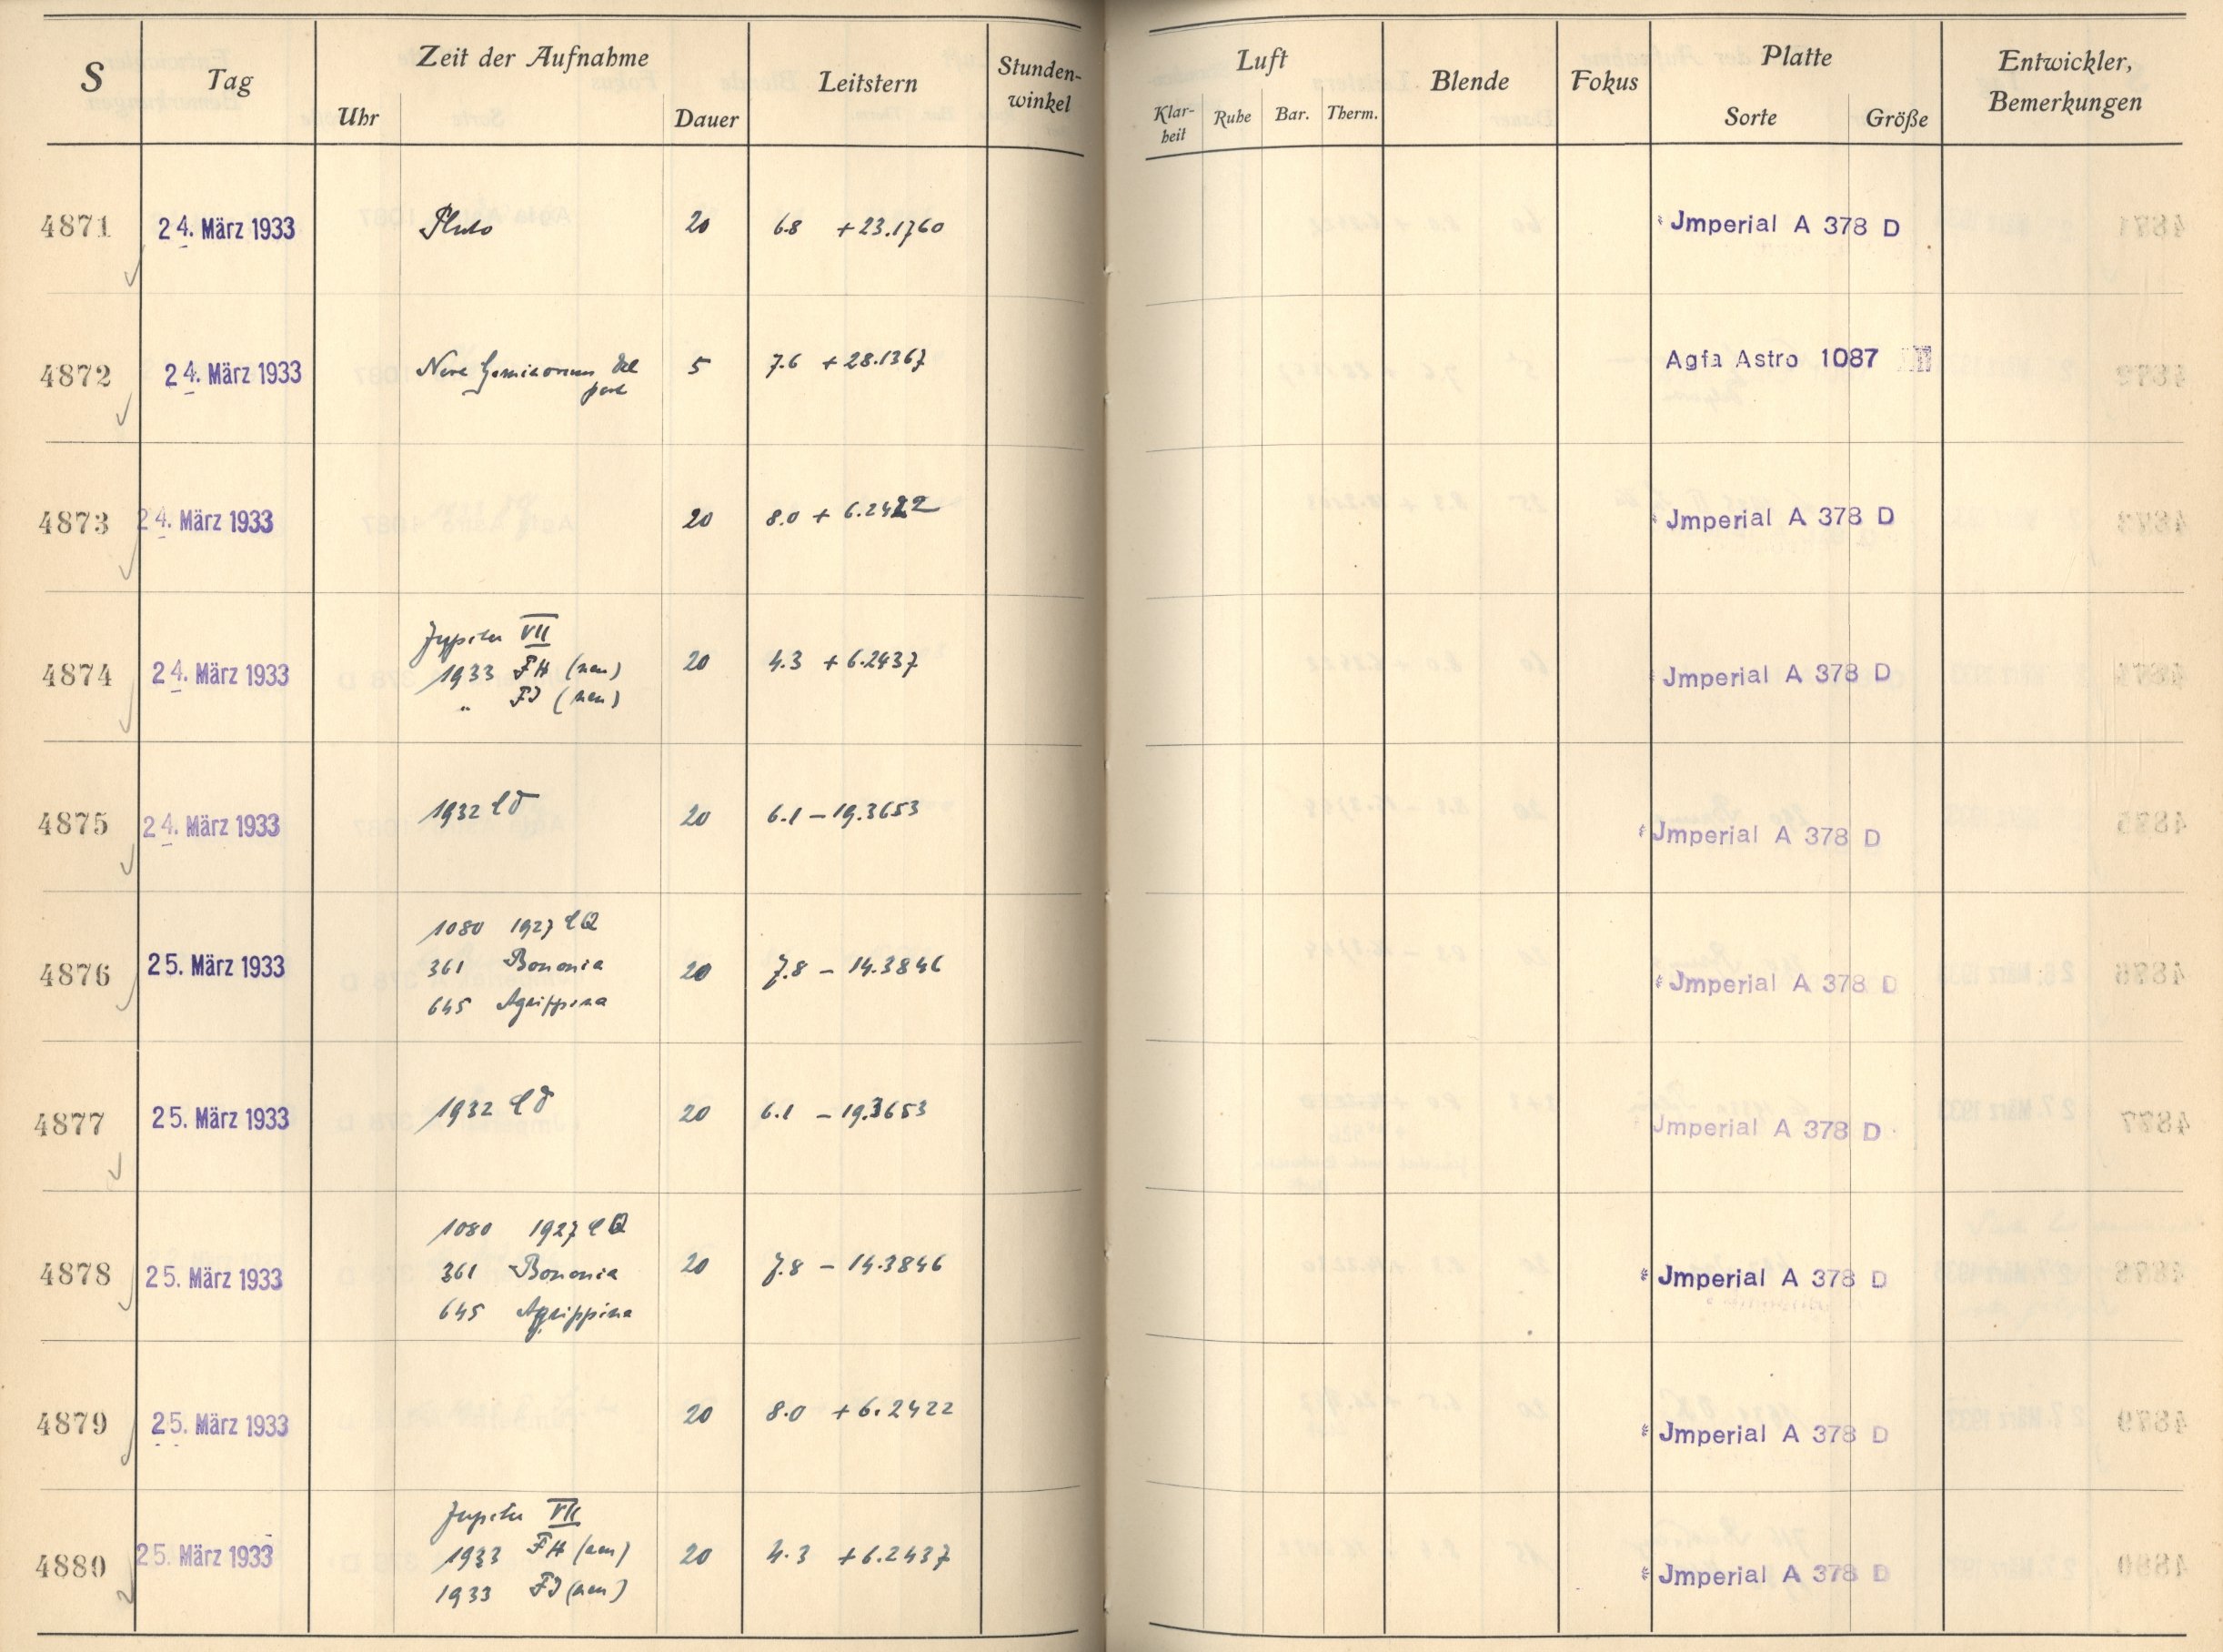 S Tag Zeit der Aufnahme Leitstern Stunden-winkel Luft Blende Fokus Platte Entwickler, Bemerkungen
Uhr Dauer Klar-heit Ruhe Bar. Therm. Sorte Größe
4871 24. März 1933 Pluto 20 6.8 +23.1760 Jmperial A 378 D
4872 24. März 1933 Nova Geminorum 5 7.6 +28.1367 Agfa Astro 1087
4873 24. März 1933 20 8.0 +6.2422 Jmperial A 378 D
Jupiter VII
4874 24. März 1933 1933 FH (neu) 20 4.3 +6.2437 Jmperial A 378 D
" FJ (neu)
4875 24. März 1933 1932 20 6.1 -19.3653 Jmperial A 378 D
1080 1927
4876 25. März 1933 361 Bononia 20 7.8 - 14.3846 Jmperial A 378 D
645 Agrippina
4877 25. März 1933 1932 20 6.1 -19.3653 Jmperial A 378 D
1080 1927
4878 25. März 1933 361 Bononia 20 7.8 - 14.3846 Jmperial A 378 D
645 Agrippina
4879 25. März 1933 20 8.0 +6.2422 Jmperial A 378 D
Jupiter VII
4880 25. März 1933 1933 FH (neu) 20 4.3 +6.2437 Jmperial A 378 D
1933 FJ (neu)